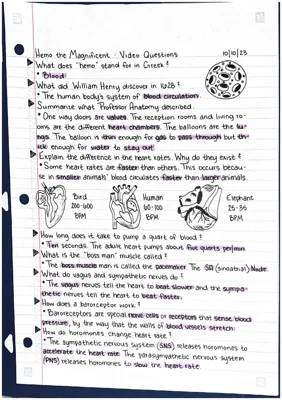 Hemo the Magnificent: Video Questions
10/10/23
What does "hemo" stand for in Greek?
• Blood.
What did William Henry discover in 1628?
• The human body's system of blood circulation.
Summarize what Professor Anatomy described.
• One way doors are valves. The reception rooms and living ro-
oms are the different heart chambers. The balloons are the lu-
ngs. The balloon is thin enough for gas to pass through but th-
ick enough for water to stay out.
Explain the difference in the heart rates. Why do they exist?
• Some heart rates are faster than others. This occurs becau-
se in smaller animals' blood circulates faster than larger animals.
Bird
200-400
BPM
Human
60-100
BPM
Elephant
25-35
BPM
How long does it take to pump a quart of blood?
• Ten seconds. The adult heart pumps about five quarts per/min.
What is the "boss man" muscle called?
• The boss muscle man is called the pacemaker. The SA (sinoatrial) Node.
What do vagus and sympathetic nerves do?
• The vagus nerves tell the heart to beat slower and the sympa-
thetic nerves tell the heart to beat faster.
How does a baroreceptor work?
• Baroreceptors are special nerve cells or receptors that sense blood
pressure, by the way that the walls of blood vessels stretch.
How do horomones change heart rate?
• The sympathetic nervous system (SNS) releases hormones to
accelerate the heart rate. The parasympathetic nervous system
(PNS) releases hormones to slow the heart rate.